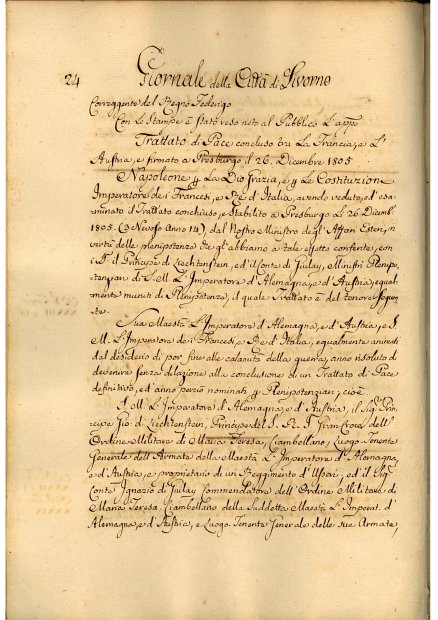 24 Giornale della Città di Livorno
Correggente del Regno Federigo
Con le Stampe è stato reso noto al Pubblico l'app:
Trattato di Pace concluso tra la Francia, e l'
Austria, e firmato a Presburgo il 26. Dicembre 1805
Napoleone p. la Dio grazia, e p. le Costituzioni
Imperatore dei Francesi, e Re d'Italia, avendo veduto, ed esa:
minato il Trattato concluso, e stabilito a Presburgo li 26 Dicemb:
1805. (5 Nevoso Anno 14), dal Nostro Ministro degl'Affari Esteri, in
virtù delle plenipotenze che gl'abbiamo a tale effetto conferite, con
i SS. il Principe di Liechtenstein, ed il Conte di Giulay, Ministri Plenipo,
tenziari di S. M. L'Imperatore d'Alemagna, e d'Austria, equal,
mente muniti di Plenipotenza, il quale Trattato è del tenore seguen
te.
Sua Maestà L'Imperatore d'Alemagna, e d'Austria, e S.
M. L'Imperatore dei Francesi, e Re d'Italia, egualmente animati
dal desiderio di por fine alle calamità della guerra, anno risoluto di
devenire senza dilazione alla conclusione di un Trattato di Pace
definitivo, ed anno perciò nominati p. Plenipotenziari, cioè
S. M. L'Imperatore d'Alemagna, e d'Austria, il Sig: Prin
cipe Gio: di Liechtenstein, Principe del S. R. I. Gran Croce dell'
Ordine Militare di Maria Teresa, Ciambellano, Luogo Tenente
Generale dell'Armata della Maestà L'Imperatore d'Alemagna,
e d'Austria, e proprietario di un Reggimento d'Usseri, ed il Sig:
Conte Ignazio di Giulay Commendatore dell'Ordine Militare di
Maria Teresa, Ciambellano della Suddetta Maestà L'Imperat. d'
Alemagna, e d'Austria, e Luogo Tenente Generale delle sue Armate,